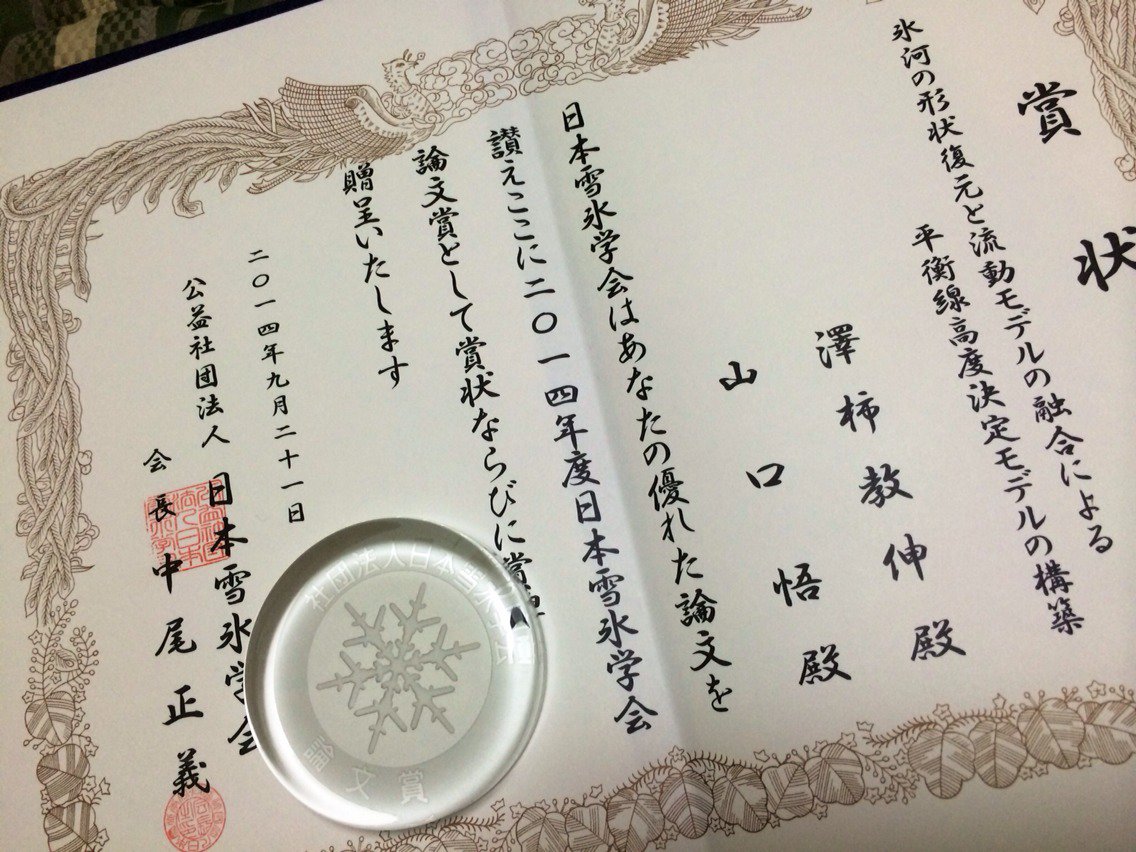 賞状
氷河の形状復元と流動モデルの融合による
平衡線高度決定モデルの構築
澤柿教伸殿
山口悟殿
日本雪氷学会はあなたの優れた論文を
讃えここに二〇一四年度日本雪氷学会
論文賞として賞状ならびに賞牌
贈呈いたします
二〇一四年九月二十一日
公益社団法人日本雪氷学会
会長中尾正義
社団法人日本雪氷学会
論文賞